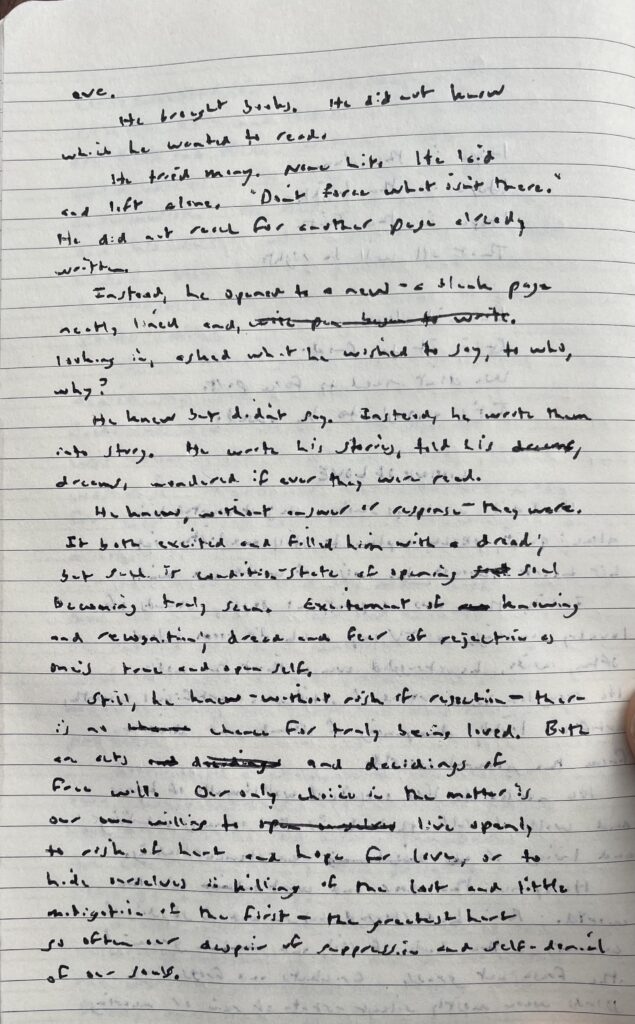 ove.
He brought books. He did not know
which he wanted to read.
He tried many. None hit. He laid
and left alone. "Don't force what isn't there."
He did not reach for another page already
written.
Instead, he opened to a new - a blank page
neatly lined and, write pen began to write.
looking in, asked what he wished to say, to who,
why?
He knew but didn't say. Instead, he wrote them
into story. He wrote his stories, told his dreams,
dreams, wondered if ever they were read.
He knew, without answer or response - they were.
It both excited and filled him with a dread;
but such is condition-state of opening soul
becoming truly seen. Excitement of knowing
and recognition; dread and fear of rejection as
one's true and open self.
Still, he knew - without risk of rejection - there
is no chance for truly being loved. Both
are acts and decidings and decidings of
free will. Our only choice in the matter is
our own willing to open ourselves live openly
to risk of hurt and hope for love, or to
hide ourselves in killing of the last and little
mitigation of the first - the greatest hurt
so often our despair of suppression and self-denial
of our souls.